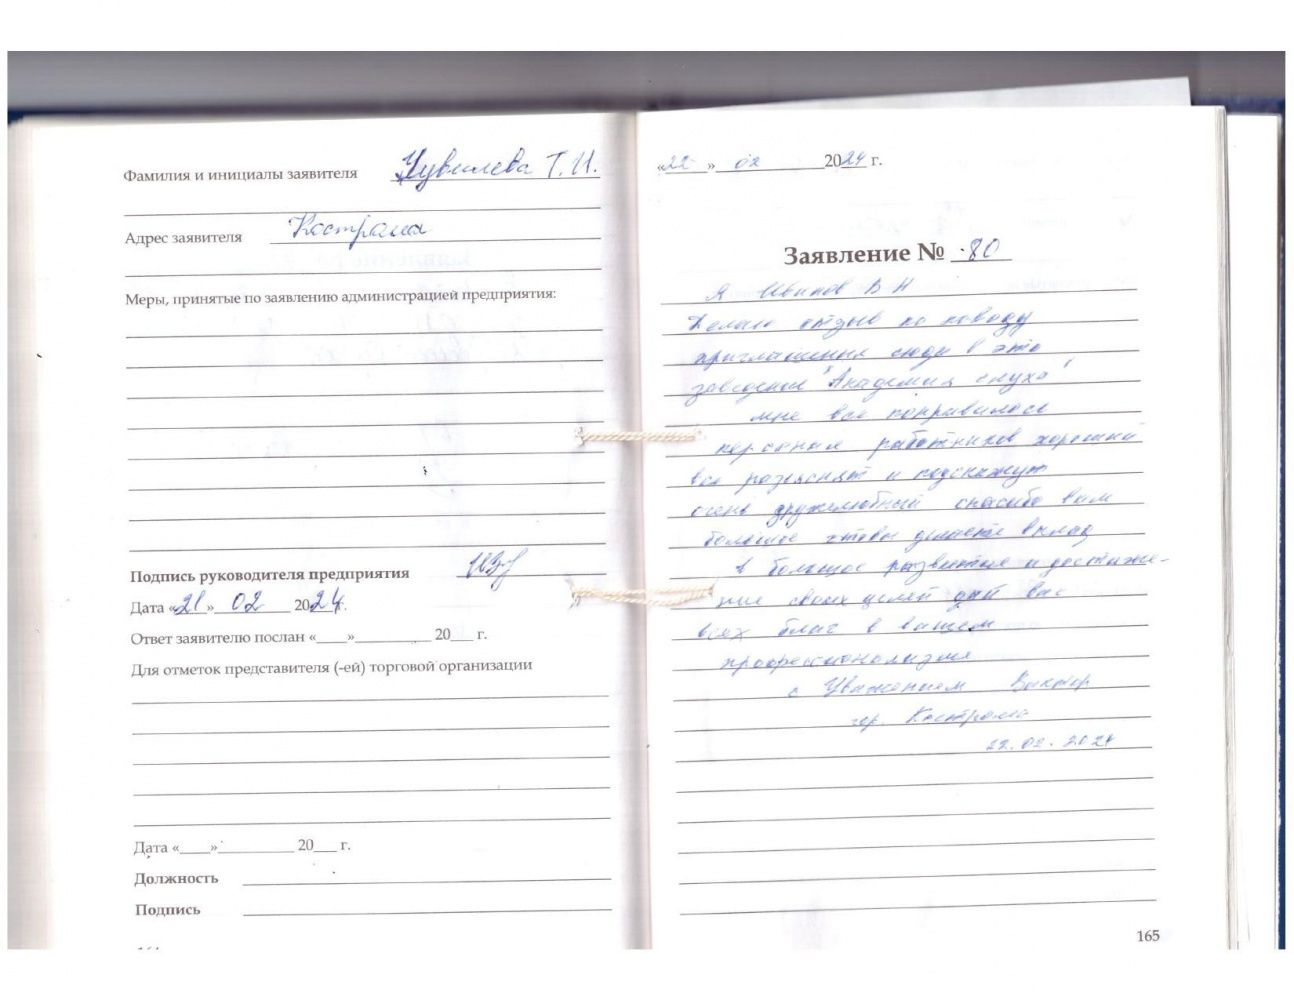 Фамилия и инициалы заявителя Чувилева Т.И.
Адрес заявителя Кострома
Меры, принятые по заявлению администрацией предприятия:
Подпись руководителя предприятия
Дата «21» 02 2024г.
Ответ заявителю послан «___»__________ 20___ г.
Для отметок представителя (-ей) торговой организации
Дата «____»__________ 20___ г.
Должность
Подпись
«22» 02 2024 г.
Заявление № 80
Я В Н
Делаю отзыв по поводу
приглашения сюда в это
заведение "Академия слуха"
мне все понравилось
персонал работников хороший
все разъяснят и подскажут
очень дружелюбный спасибо вам
большое вклад
в большое развитие и достиже-
ние своих целей дай вас
всех благ в вашем
профессионализме
с Уважением Виктор
гор. Кострома
22.02.2024
165